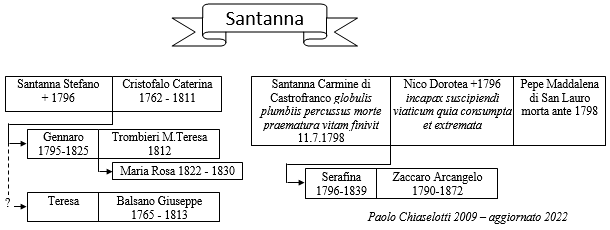 Santanna
Santanna Stefano
+ 1796
Cristofalo Caterina
1762 - 1811
Santanna Carmine di
Castrofranco globulis
plumbiis percussus morte
praematura vitam finivit
11.7.1798
Nico Dorotea +1796
incapax suscipiendi
viaticum quia consumpta
et extremata
Pepe Maddalena
di San Lauro
morta ante 1798
Gennaro
1795-1825
Trombieri M.Teresa
1812
Maria Rosa 1822 - 1830
Serafina
1796-1839
Zaccaro Arcangelo
1790-1872
?
Teresa
Balsano Giuseppe
1765 - 1813
Paolo Chiaselotti 2009 – aggiornato 2022